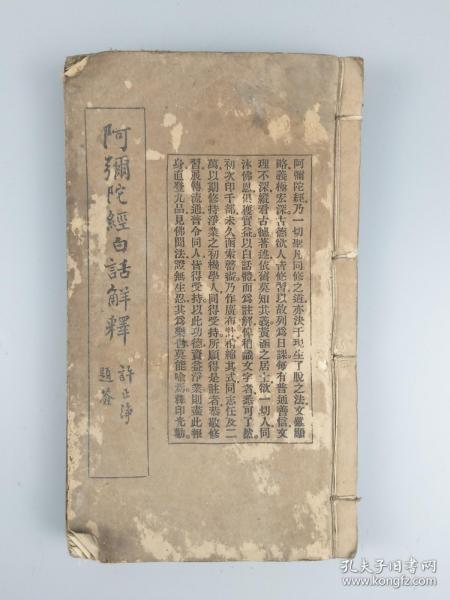 阿彌陀經白話解釋
許止淨
題簽
阿彌陀經乃一切聖凡同修之道亦決于現生了脫之法文雖顯
略義極宏深古德欲人皆修習以故列為日課每有普通善信文
理不深縱看古德著述依舊莫知其義黃涵之居士欲一切人同
沐佛恩俱獲實益以白話體而為註解俾稍識文字者悉可了然
初次印千部未久而索罄茲乃作廣布計稍縮其式同志任及二
萬以期修持淨業之初機學人同得受持所願得是註者恭敬修
習展轉流通普令同人皆得受持以此功德資益淨業則盡此報
身直登九品見佛聞法證無生忍其為樂也莫能喻焉釋印光勸
孔夫子旧书网
kongfz.com